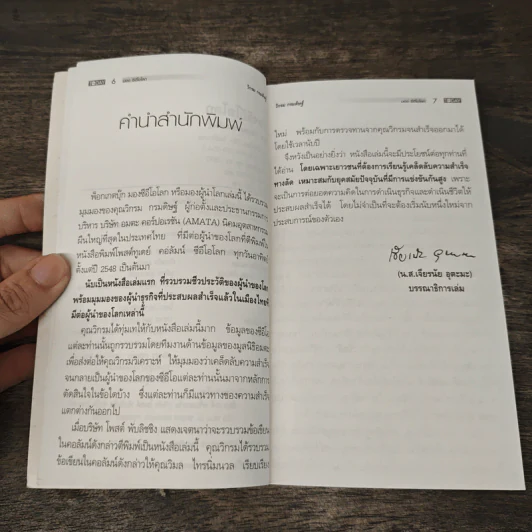 6
วิกรม กรมดิษฐ์
คำนำสำนักพิมพ์
พ็อกเกตบุ๊ก มองซีอีโอโลก หรือมองผู้นำโลกเล่มนี้ ได้รวบรวม
มุมมองของคุณวิกรม กรมดิษฐ์ ผู้ก่อตั้งและประธานกรรมการ
บริหาร บริษัท อมตะ คอร์ปอเรชัน (AMATA) นิคมอุตสาหกรรม
ผืนใหญ่ที่สุดในประเทศไทย ที่มีต่อผู้นำของโลกที่ตีพิมพ์ใน
หนังสือพิมพ์โพสต์ทูเดย์ คอลัมน์ ซีอีโอโลก ทุกวันอาทิตย์
ตั้งแต่ปี 2548 เป็นต้นมา
นับเป็นหนังสือเล่มแรก ที่รวบรวมชีวประวัติของผู้นำของโลก
พร้อมมุมมองของผู้นำธุรกิจที่ประสบผลสำเร็จแล้วในเมืองไทยที่
มีต่อผู้นำของโลกเหล่านี้
คุณวิกรมได้ทุ่มเทให้กับหนังสือเล่มนี้มาก ข้อมูลของซีอีโอ
แต่ละท่านนั้นถูกรวบรวมโดยทีมงานด้านข้อมูลของมูลนิธิอมตะ
เพื่อส่งต่อให้คุณวิกรมวิเคราะห์ ให้มุมมองว่าเคล็ดลับความสำเร็จ
จนกลายเป็นผู้นำของโลกของซีอีโอแต่ละท่านนั้นมาจากหลักการ
ตัดสินใจในข้อใดบ้าง ซึ่งแต่ละท่านก็มีแนวทางของความสำเร็จ
แตกต่างกันออกไป
เมื่อบริษัท โพสต์ พับลิชชิง แสดงเจตนาว่าจะรวบรวมข้อเขียน
ในคอลัมน์ดังกล่าวตีพิมพ์เป็นหนังสือเล่มนี้ คุณวิกรมได้รวบรวม
ข้อเขียนในคอลัมน์ดังกล่าวให้คุณวิมล ไทรนิ่มนวล เรียบเรียง
วิกรม กรมดิษฐ์
7
ใหม่ พร้อมกับการตรวจทานจากคุณวิกรมจนสำเร็จออกมาได้
โดยใช้เวลานับปี
จึงหวังเป็นอย่างยิ่งว่า หนังสือเล่มนี้จะมีประโยชน์ต่อทุกท่านที่
ได้อ่าน โดยเฉพาะเยาวชนที่ต้องการเรียนรู้เคล็ดลับความสำเร็จ
ทางลัด เหมาะสมกับยุคสมัยปัจจุบันที่มีการแข่งขันกันสูง เพราะ
จะเป็นการต่อยอดความคิดในการดำเนินธุรกิจและดำเนินชีวิตให้
ประสบผลสำเร็จได้ โดยไม่จำเป็นที่จะต้องเริ่มนับหนึ่งใหม่จาก
ประสบการณ์ของตัวเอง
(น.ส.เจียรนัย อุตะมะ)
บรรณาธิการเล่ม